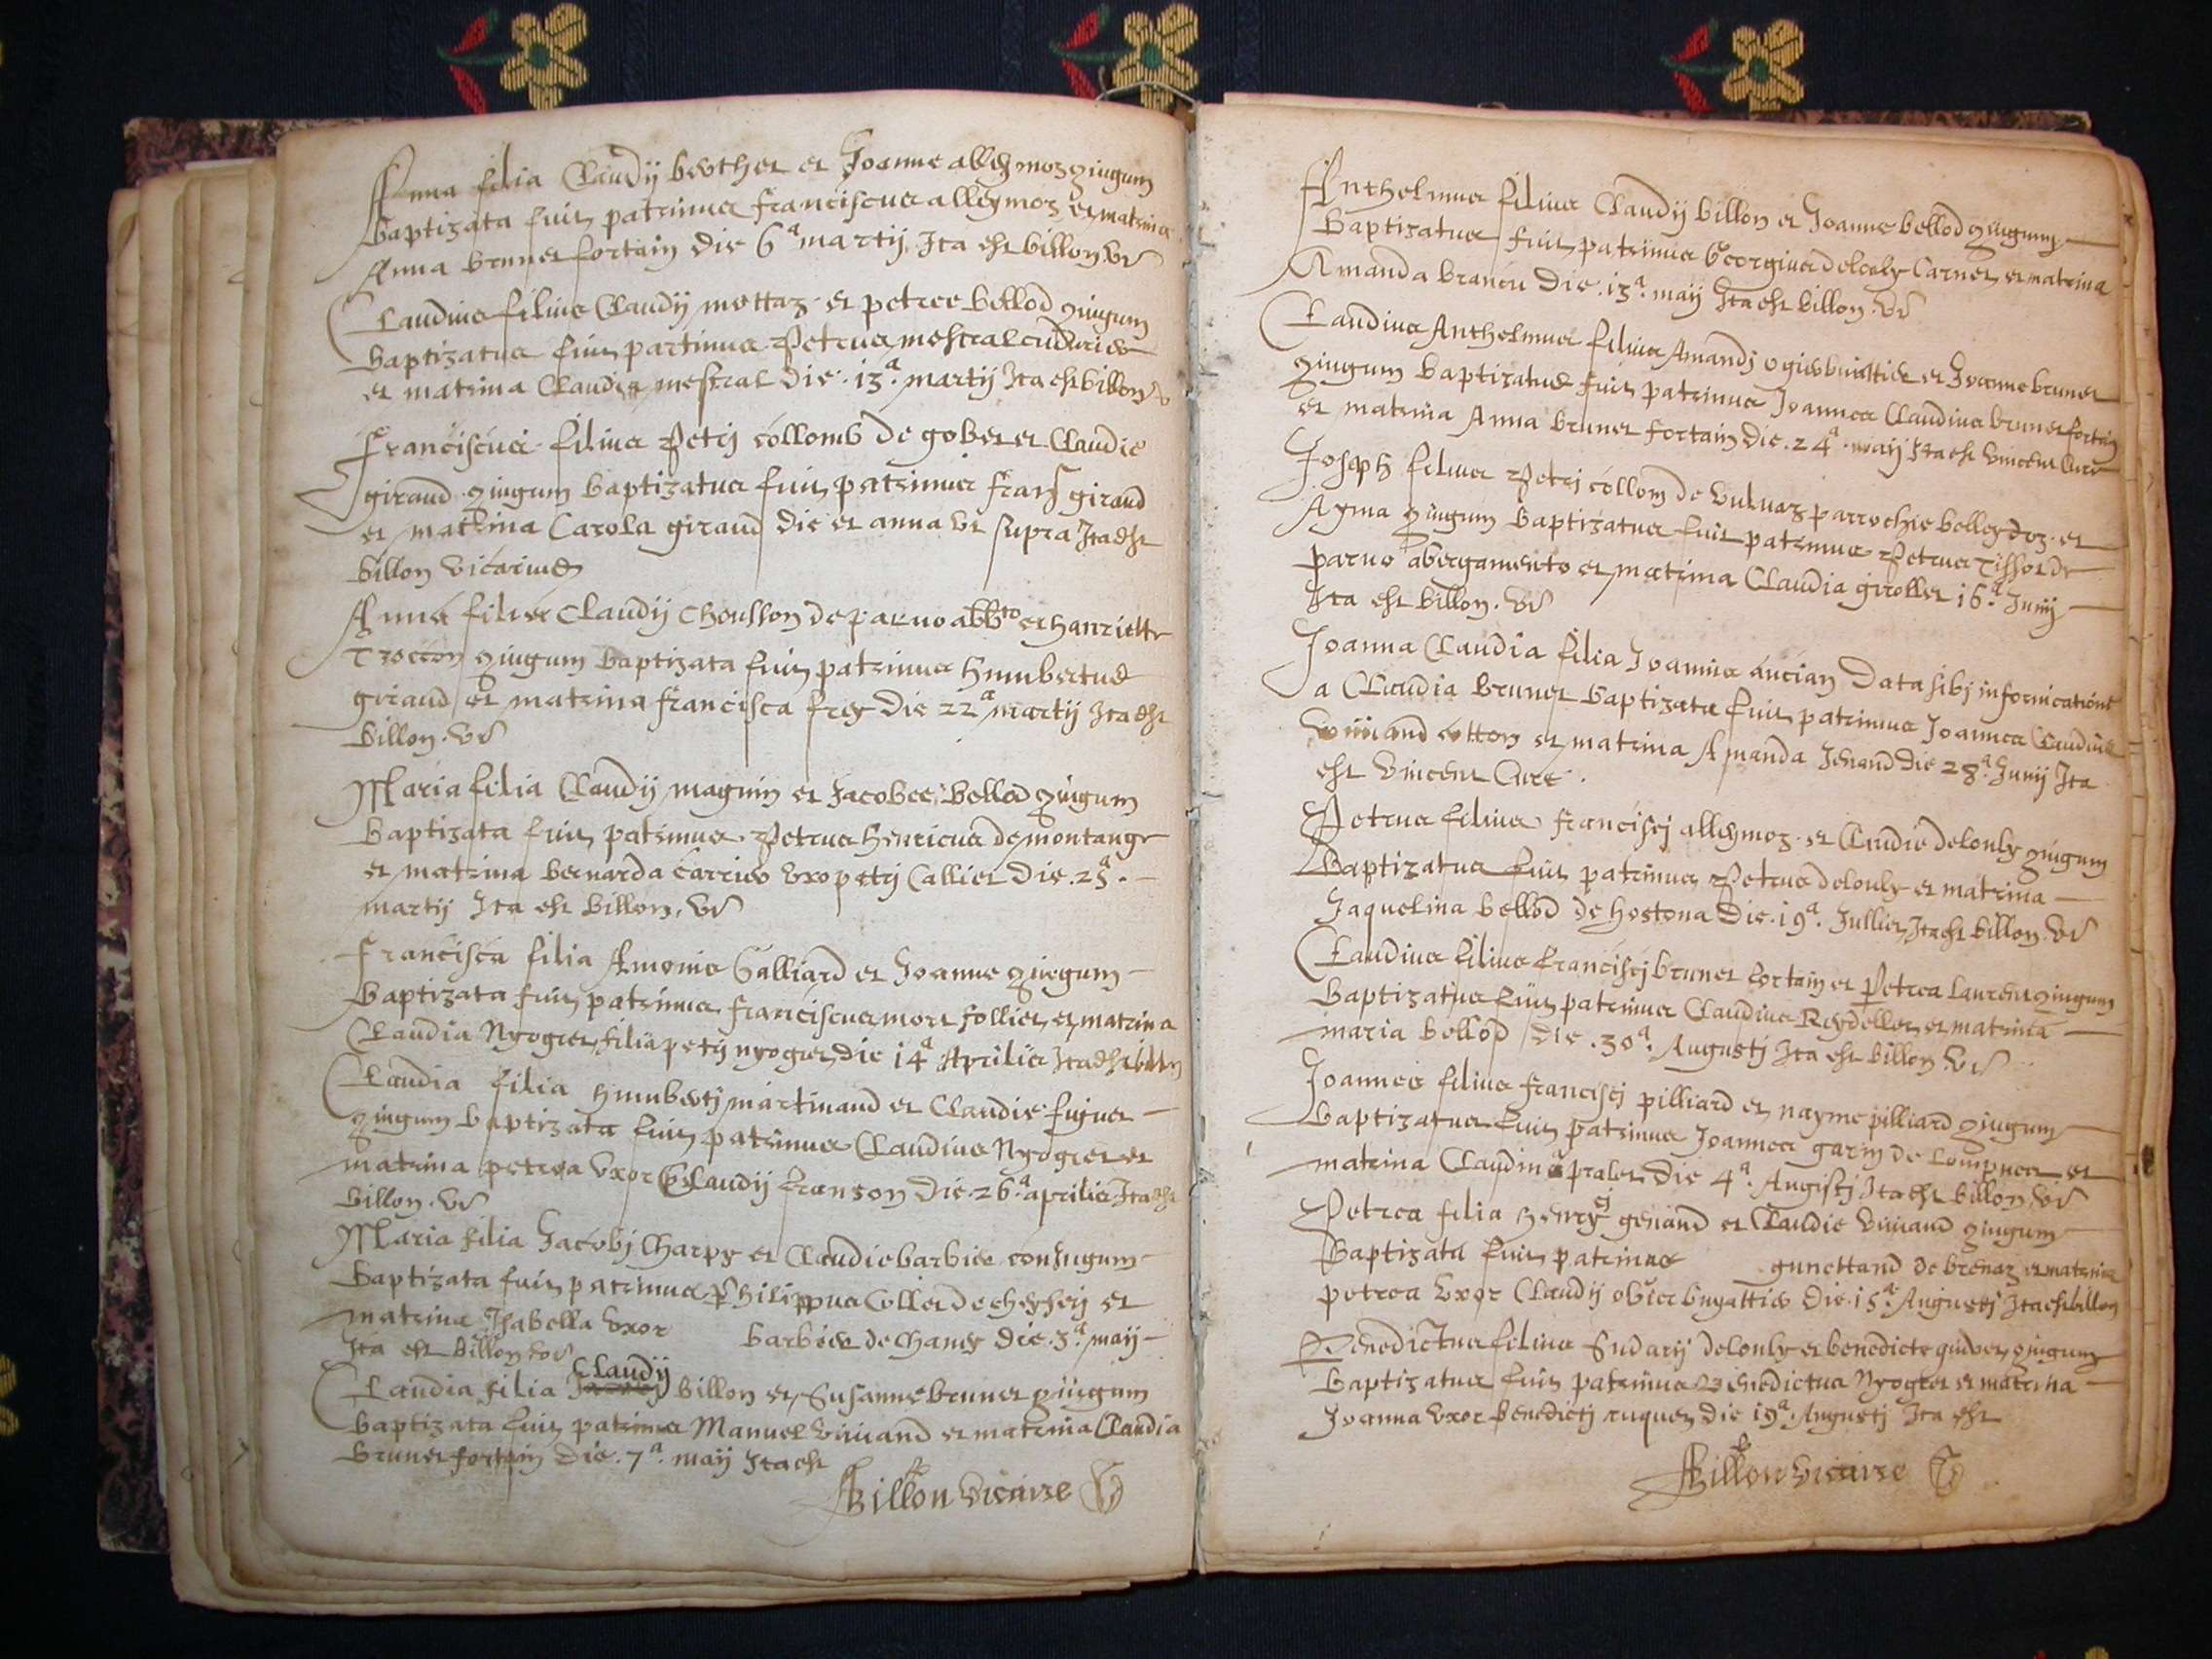 Anna filia Claudij berthet et Joanne alleymoz giugum
baptizata fuit patrinus franciscus alleymoz et matrina
Anna brunet fortain die 6ª martij Ita est billon vr
Claudius filius Claudij mottaz et petree bellod giugum
baptizatus fuit partinus Petrus mestral
et matrina Claudia mestral die 13ª martij Ita est billon v
Franciscus filius Petrj collomb de gobet et Claudie
giraud giugum baptizatus fuit patrinus giraud
et matrina Carola giraud die et anna ut supra Ita est
billon vicarius
Anna filia Claudij Chousson de paruo abbto et hanriette
Troccon giugum baptizata fuit patrinus humbertus
giraud et matrina francisca frey die 22ª martij Ita est
billon vr
Maria filia Claudij magnin et Jacobee bellod giugum
baptizata fuit patrinus Petrus henricus de montange
et matrina bernarda carrier vxo petrj Callier die 25ª
martij Ita est billon vr
Francisca filia Galliard et Joanne giugum
baptizata fuit patrinus franciscus mort follier et matrina
Claudia Nyogret filia petrj nyogret die 14ª Aprilis Ita est billon
Claudia filia humbertj martinand et Claudie fuguet
giugum baptizata fuit patrinus Claudius Nyogret et
matrina petrea vxor Claudij franson die 26ª aprilis Ita est
billon vr
Maria filia Jacobj Charpy et Claudie barbier conjugum
baptizata fuit patrinus philippus Collet de cheysery et
matrina Isabella vxor barbier de chaney die 3ª maij
Ita est billon vr
Claudij
Claudia filia billon et Susanne brunet giugum
baptizata fuit patrinus Manuel viuiand et matrina Claudia
brunet fortain die 7ª maij Ita est
Billon vicaire
Anthelmus filius Claudij billon et Joanne bellod giugum
baptizatus fuit patrinus Georgius Carnet et matrina
Amanda brancu die 13ª maij Ita est billon vr
Claudius Anthelmus filius Amandj ogier et Joanne brunet
giugum baptizatus fuit patrinus Joannes Claudius brunet fortain
et matrina Anna brunet fortain die 24ª maij Ita est vincent Cure
Joseph filius Petrj collom de vulnaz parrochie belleydoz et
Ayma giugum baptizatus fuit patrinus Petrus tissot de
paruo abergamento et matrina Claudia girollet 16ª Junij
Ita est billon vr
Joanna Claudia filia Joannis ancian data sibj in fornicatione
a Claudia brunet baptizata fuit patrinus Joannes Claudius
viuiand cotton et matrina Amanda Jenand die 28ª Junij Ita
est vincent Cure
Petrus filius franciscj alleymoz et Claudie delouly giugum
baptizatus fuit patrinus Petrus delouly et matrina
Jaquelina bellod de hostona die 19ª Jullie Ita est billon vr
Claudius filius franciscj brunet fortain et Petrea laurent giugum
baptizatus fuit patrinus Claudius Reydellet et matrina
maria bellod die 30ª Augustj Ita est billon vr
Joannes filius franciscj pilliard et nayme pilliard giugum
baptizatus fuit patrinus Joannes garin de lompnes et
matrina Claudina pralet die 4ª Augustj Ita est billon vr
Petrea filia henry cj genand et Claudie viuiand giugum
baptizata fuit patrinus gunettand de brenaz et matrina
petrea vxor Claudij ogier buyattier die 15ª Augustj Ita est billon
Benedictus filius Sudarij delouly et benedicte giugum
baptizatus fuit patrinus Benedictus Nyogret et matrina
Joanna vxor benedictj ruquet die 19ª Augustj Ita est
Billon vicaire